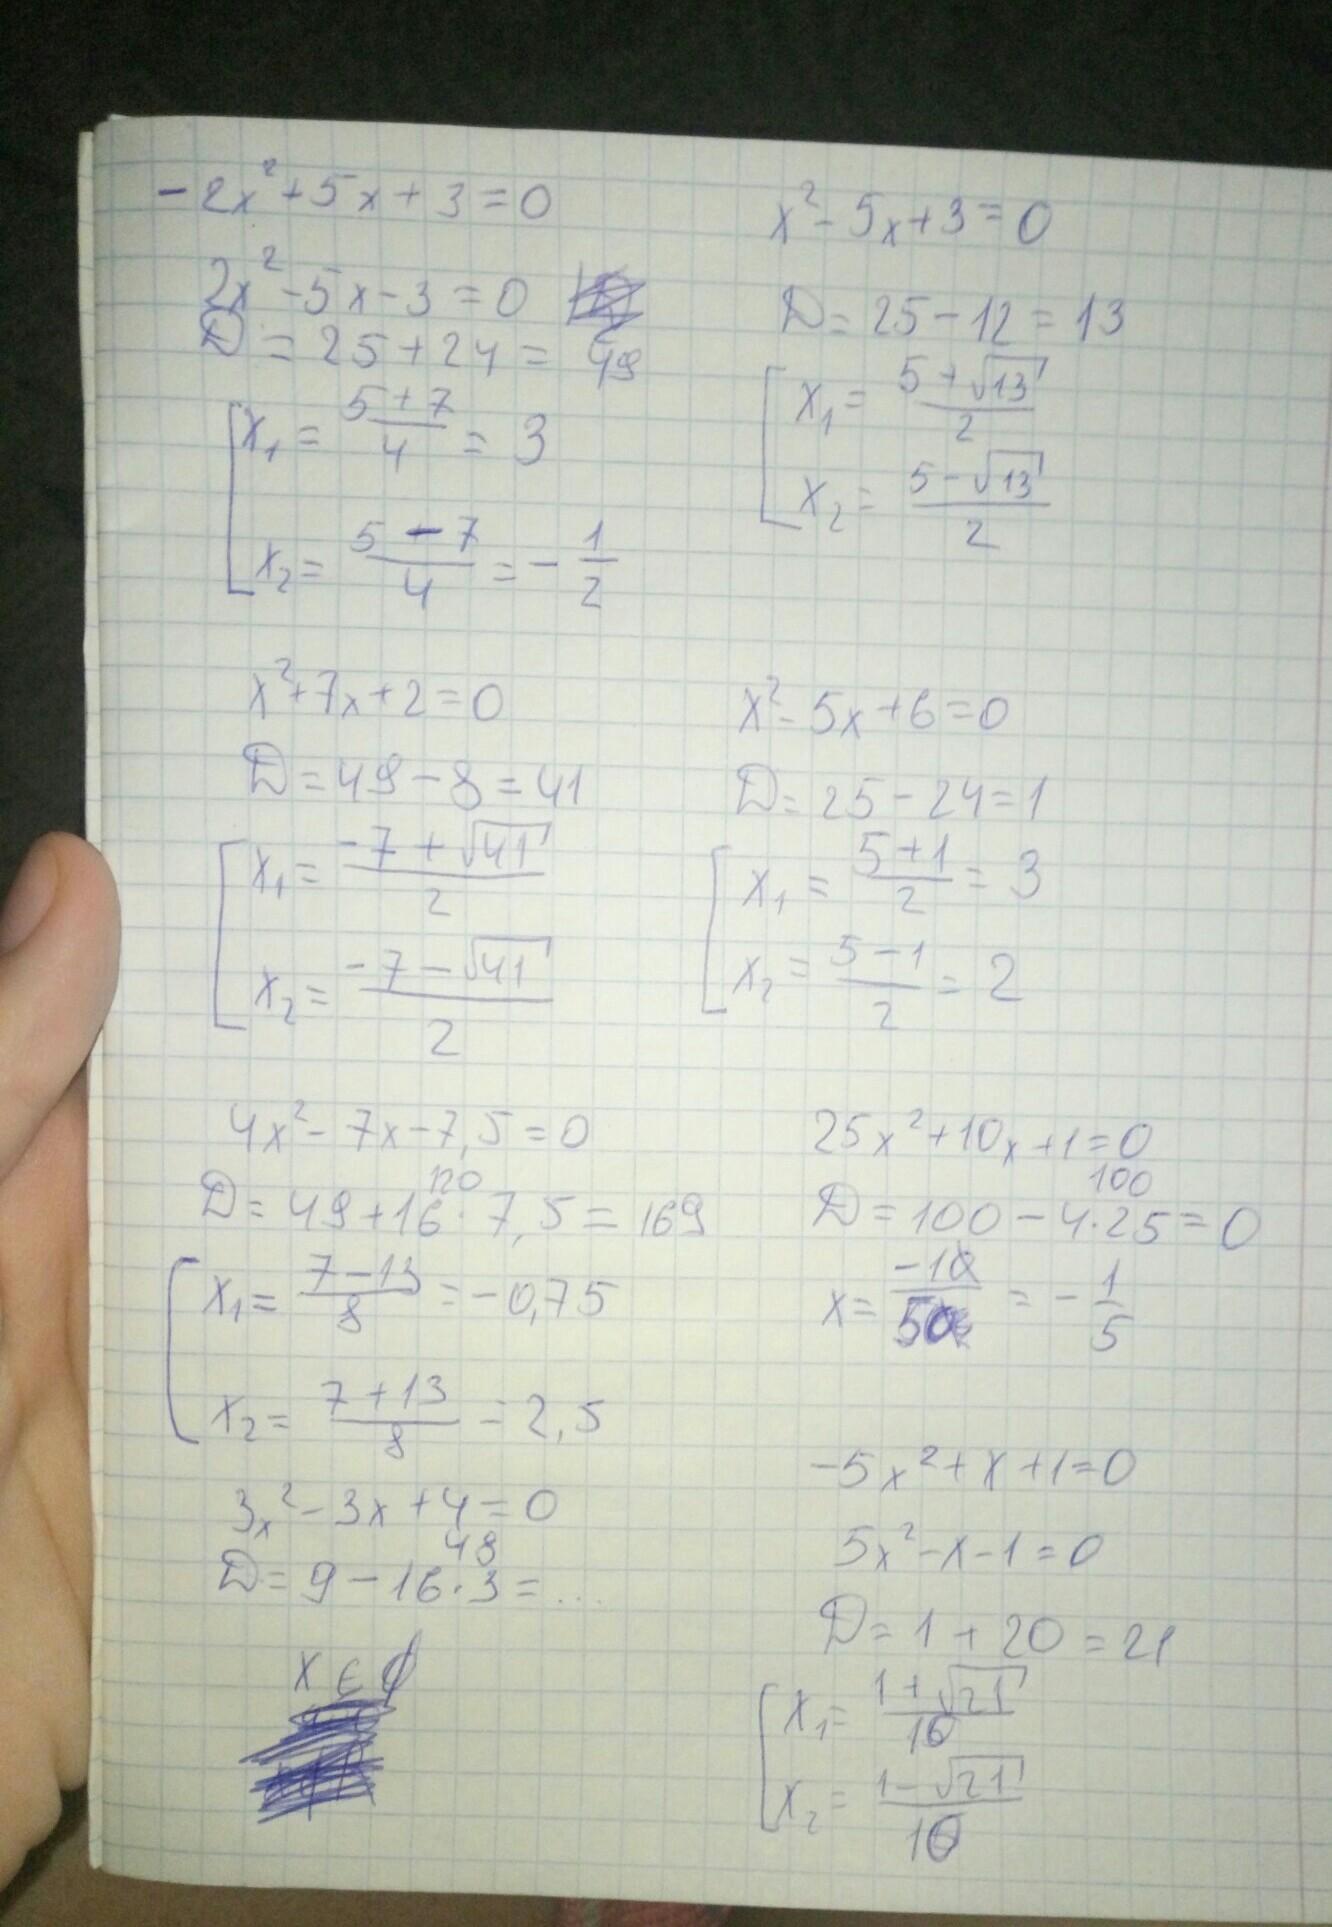 -2x²+5x+3=0
2x²-5x-3=0
D=25+24=49
x₁=(5+7)/4=3
x₂=(5-7)/4=-1/2
x²-5x+3=0
D=25-12=13
x₁=(5+√13)/2
x₂=(5-√13)/2
x²+7x+2=0
D=49-8=41
x₁=(-7+√41)/2
x₂=(-7-√41)/2
x²-5x+6=0
D=25-24=1
x₁=(5+1)/2=3
x₂=(5-1)/2=2
4x²-7x-7,5=0
120
D=49+16·7,5=169
x₁=(7-13)/8=-0,75
x₂=(7+13)/8=2,5
25x²+10x+1=0
100
D=100-4·25=0
x=-10/50=-1/5
3x²-3x+4=0
48
D=9-16·3=...
x∈∅
-5x²+x+1=0
5x²-x-1=0
D=1+20=21
x₁=(1+√21)/10
x₂=(1-√21)/10